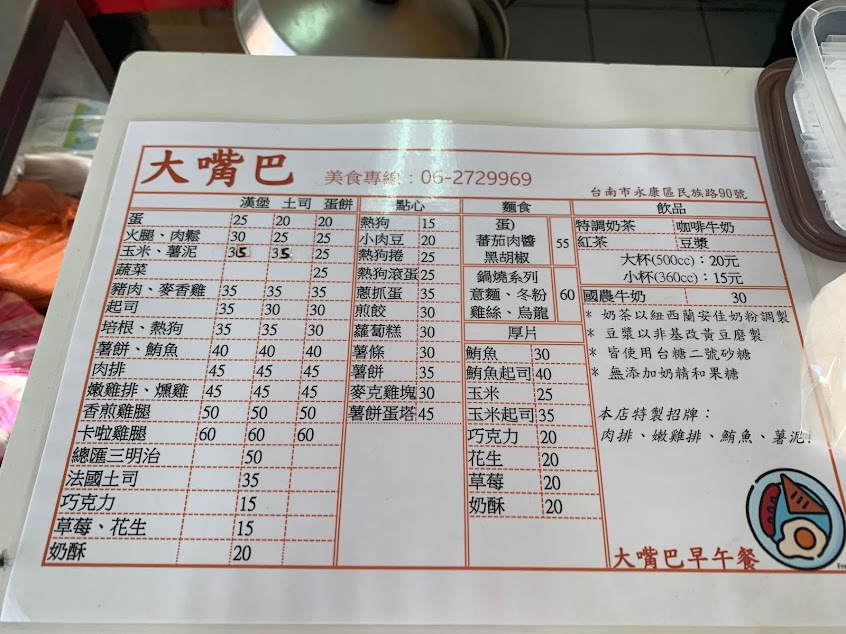 大嘴巴 美食專線：06-2729969
台南市永康區民族路90號
漢堡 土司 蛋餅
蛋 25 20 20
火腿、肉鬆 30 25 25
玉米、薯泥 35 35 25
蔬菜 25
豬肉、麥香雞 35 35 35
起司 35 30 30
培根、熱狗 35 30 35
薯餅、鮪魚 40 40 40
肉排 45 45 45
嫩雞排、燻雞 45 45 45
香煎雞腿 50 50 50
卡啦雞腿 60 60 60
總匯三明治 50
法國土司 35
巧克力 15
草莓、花生 15
奶酥 20
點心
熱狗 15
小肉豆 20
熱狗捲 25
熱狗滾蛋 25
蔥抓蛋 35
煎餃 30
蘿蔔糕 30
薯條 30
薯餅 35
麥克雞塊 30
薯餅蛋塔 45
麵食
蛋)
蕃茄肉醬 55
黑胡椒
鍋燒系列
意麵、冬粉 60
雞絲、烏龍
厚片
鮪魚 30
鮪魚起司 40
玉米 25
玉米起司 35
巧克力 20
花生 20
草莓 20
奶酥 20
飲品
特調奶茶 咖啡牛奶
紅茶 豆漿
大杯(500cc)：20元
小杯(360cc)：15元
國農牛奶 30
* 奶茶以紐西蘭安佳奶粉調製
* 豆漿以非基改黃豆磨製
* 皆使用台糖二號砂糖
* 無添加奶精和果糖
本店特製招牌：
肉排、嫩雞排、鮪魚、薯泥!
大嘴巴早午餐